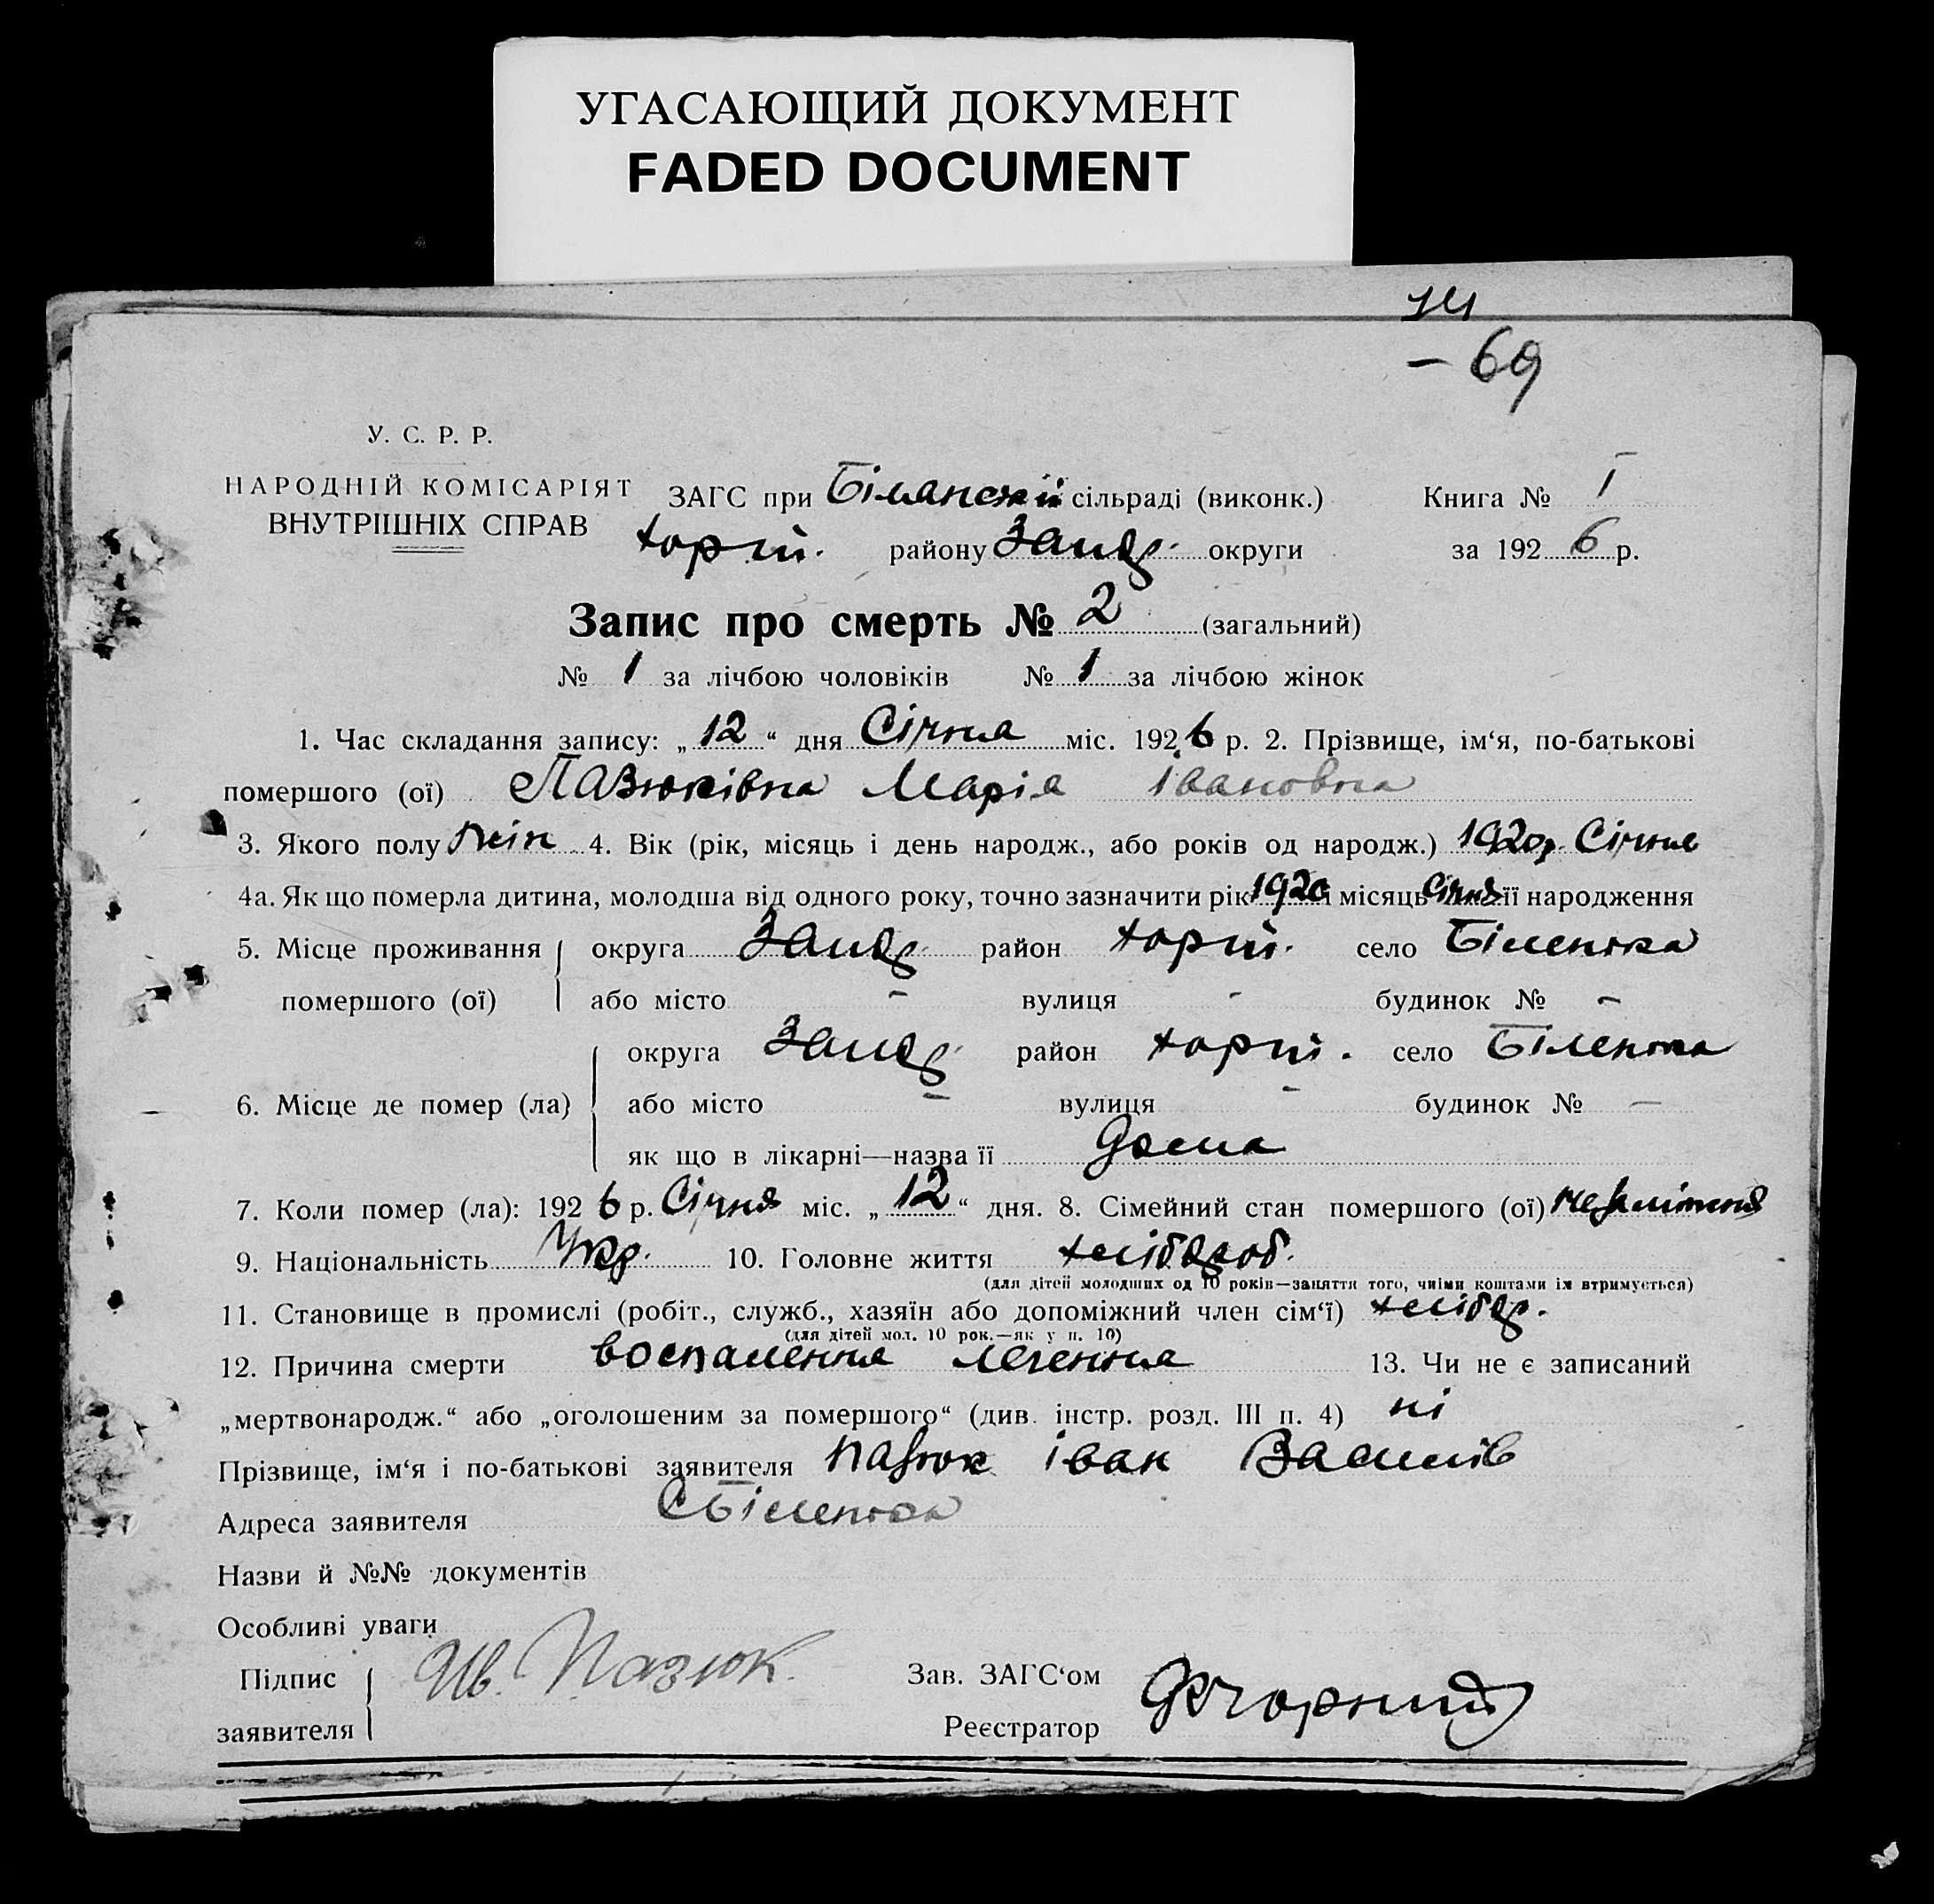 УГАСАЮЩИЙ ДОКУМЕНТ
FADED DOCUMENT
— 69
У. С. Р. Р.
НАРОДНІЙ КОМІСАРІЯТ
ВНУТРІШНІХ СПРАВ
ЗАГС при сільраді (виконк.) Книга № I
Хорт. району Запор. округи за 1926 р.
Запис про смерть № 2 (загальний)
№ 1 за лічбою чоловіків № 1 за лічбою жінок
1. Час складання запису: „12“ дня Січня міс. 1926 р. 2. Прізвище, ім‘я, по-батькові
помершого (ої) Пазюківна Марія Івановна
3. Якого полу жін 4. Вік (рік, місяць і день народж., або років од народж.) 1920 р. Січня
4а. Як що померла дитина, молодша від одного року, точно зазначити рік 1920 і місяць Січня її народження
5. Місце проживання округа Запор. район Хорт. село Біленька
помершого (ої) або місто – вулиця – будинок № –
округа Запор. район Хорт. село Біленька
6. Місце де помер (ла) або місто – вулиця – будинок № —
як що в лікарні—назва її дома
7. Коли помер (ла): 1926 р. Січня міс. „12“ дня. 8. Сімейний стан помершого (ої)
9. Національність Укр. 10. Головне життя хлібороб.
(для дітей молодших од 10 років—заняття того, чиїми коштами їх втримується)
11. Становище в промислі (робіт., служб., хазяїн або допоміжний член сім‘ї) хлібор.
(для дітей мол. 10 рок.—як у п. 10)
12. Причина смерти воспаления легення 13. Чи не є записаний
„мертвонародж.“ або „оголошеним за помершого“ (див. інстр. розд. III п. 4) ні
Прізвище, ім‘я і по-батькові заявителя Пазюк Іван Василів
Адреса заявителя С Біленька
Назви й №№ документів
Особливі уваги
Підпис Ив. Пазюк. Зав. ЗАГС‘ом
заявителя Реєстратор